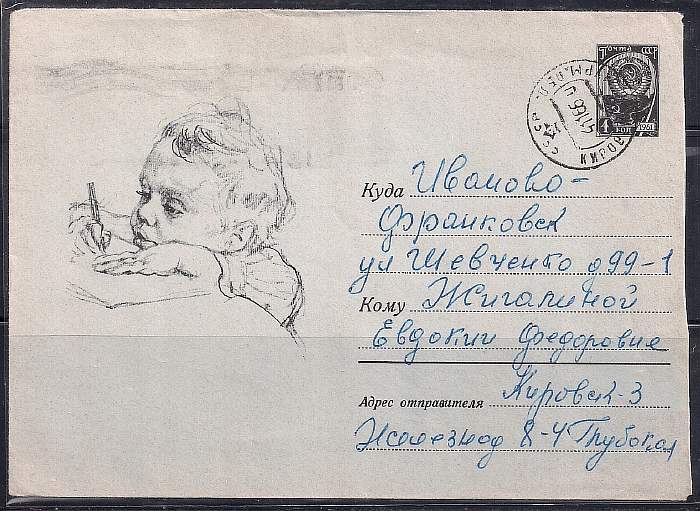 Почта СССР
4 коп 1961
СССР
Куда Иваново-
Франковск
ул Шевченко д 99-1
Кому Жигалиной
Евдокии Федоровне
Адрес отправителя Кировск-3
8-4 Глубокая